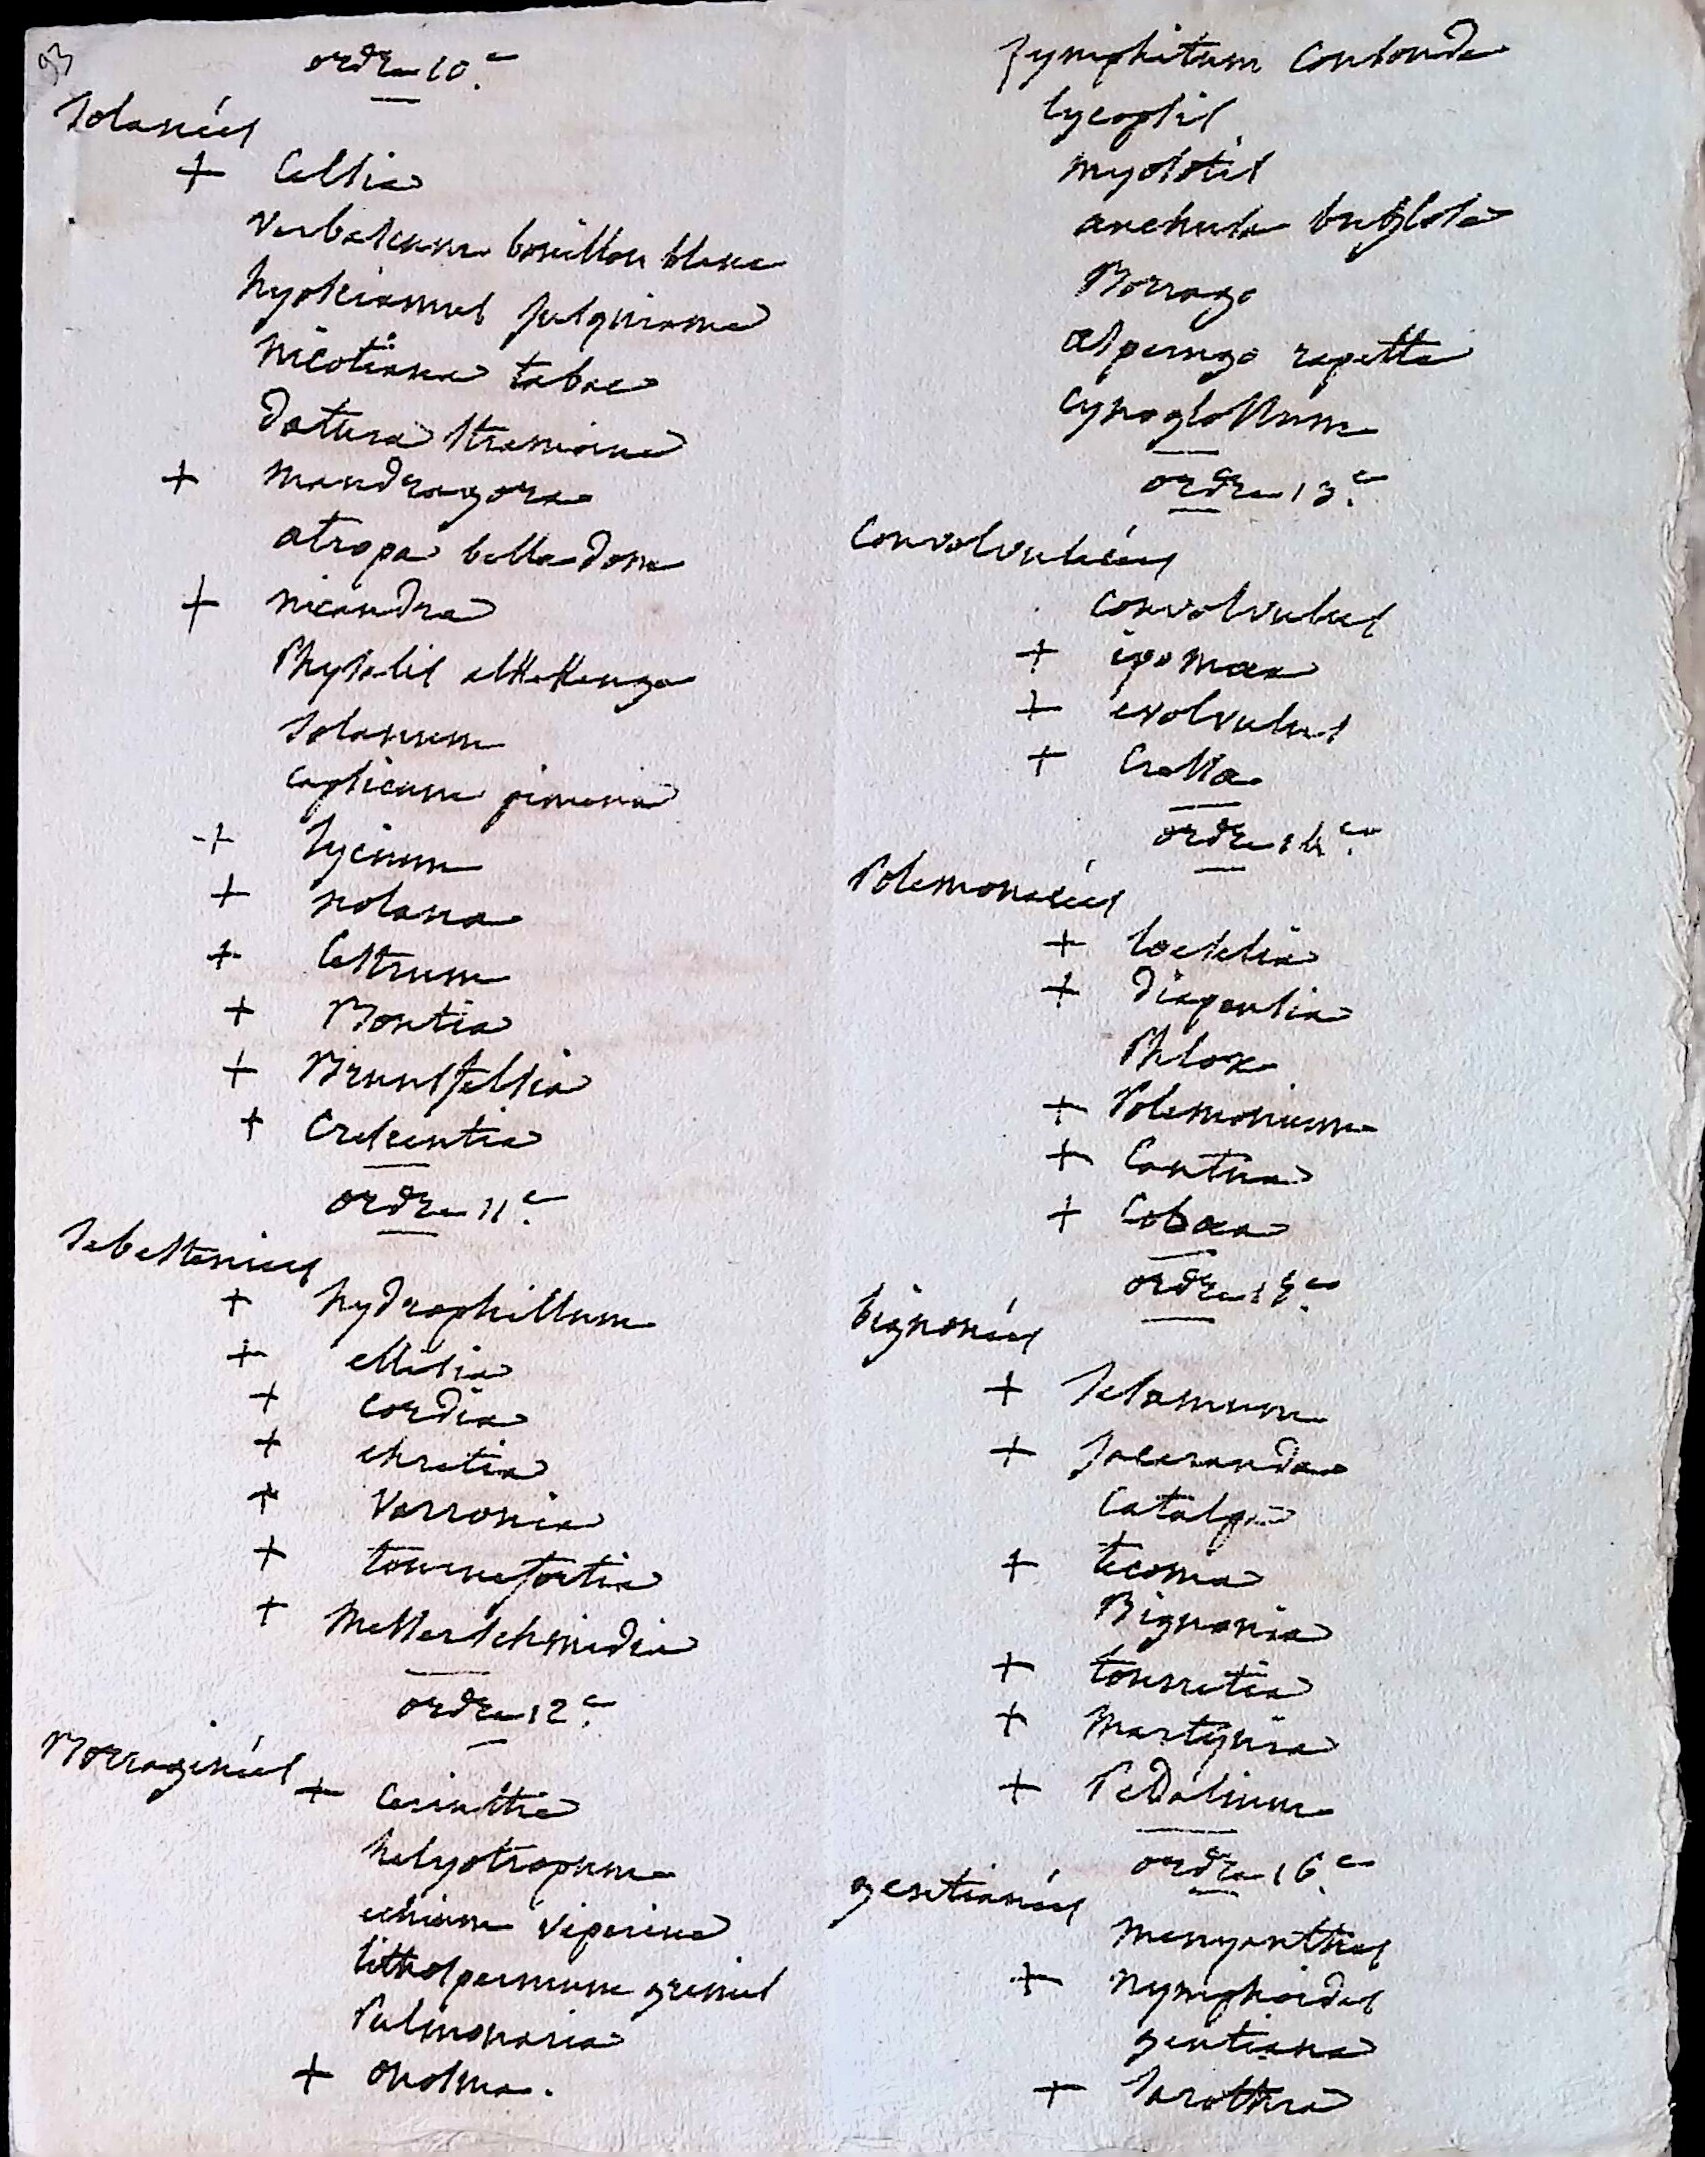 93
ordre 10.e
Solanées
+ Celsia
Verbascum bouillon blanc
hyosciamus jusquiame
Nicotiana tabac
Datura stramoine
+ mandragora
atropa belladone
+ nicandra
Physalis alkekenge
Solanum
capsicum piment
+ Lycium
+ nolana
+ Cestrum
+ Bontia
+ Brunsfelsia
+ Crescentia
ordre 11.e
Sebesteniers
+ hydrophillum
+ ellisia
+ cordia
+ ehretia
+ Varronia
+ tournefortia
+ Messerschmidia
ordre 12.e
Borraginées
+ Cerinthe
helyotropum
echium viperine
lithospermum gremil
Pulmonaria
+ onosma.
symphitum Consoude
lycopsis
myosotis
anchusa buglose
Borrago
asperugo rapette
cynoglossum
ordre 13.e
Convolvulacées
convolvulus
+ ipomæa
+ evolvulus
+ Cressa
ordre 14.e
Polemonacées
+ loeselia
+ diapensia
Phlox
+ Polemonium
+ Cantua
+ Cobæa
ordre 15.e
bignonées
+ Sesamum
+ jacaranda
Catalpa
+ tecoma
Bignonia
+ tourretia
+ Martynia
+ Pedalium
ordre 16.e
gentianées
menyanthes
+ nymphoides
gentiana
+ Sarothra